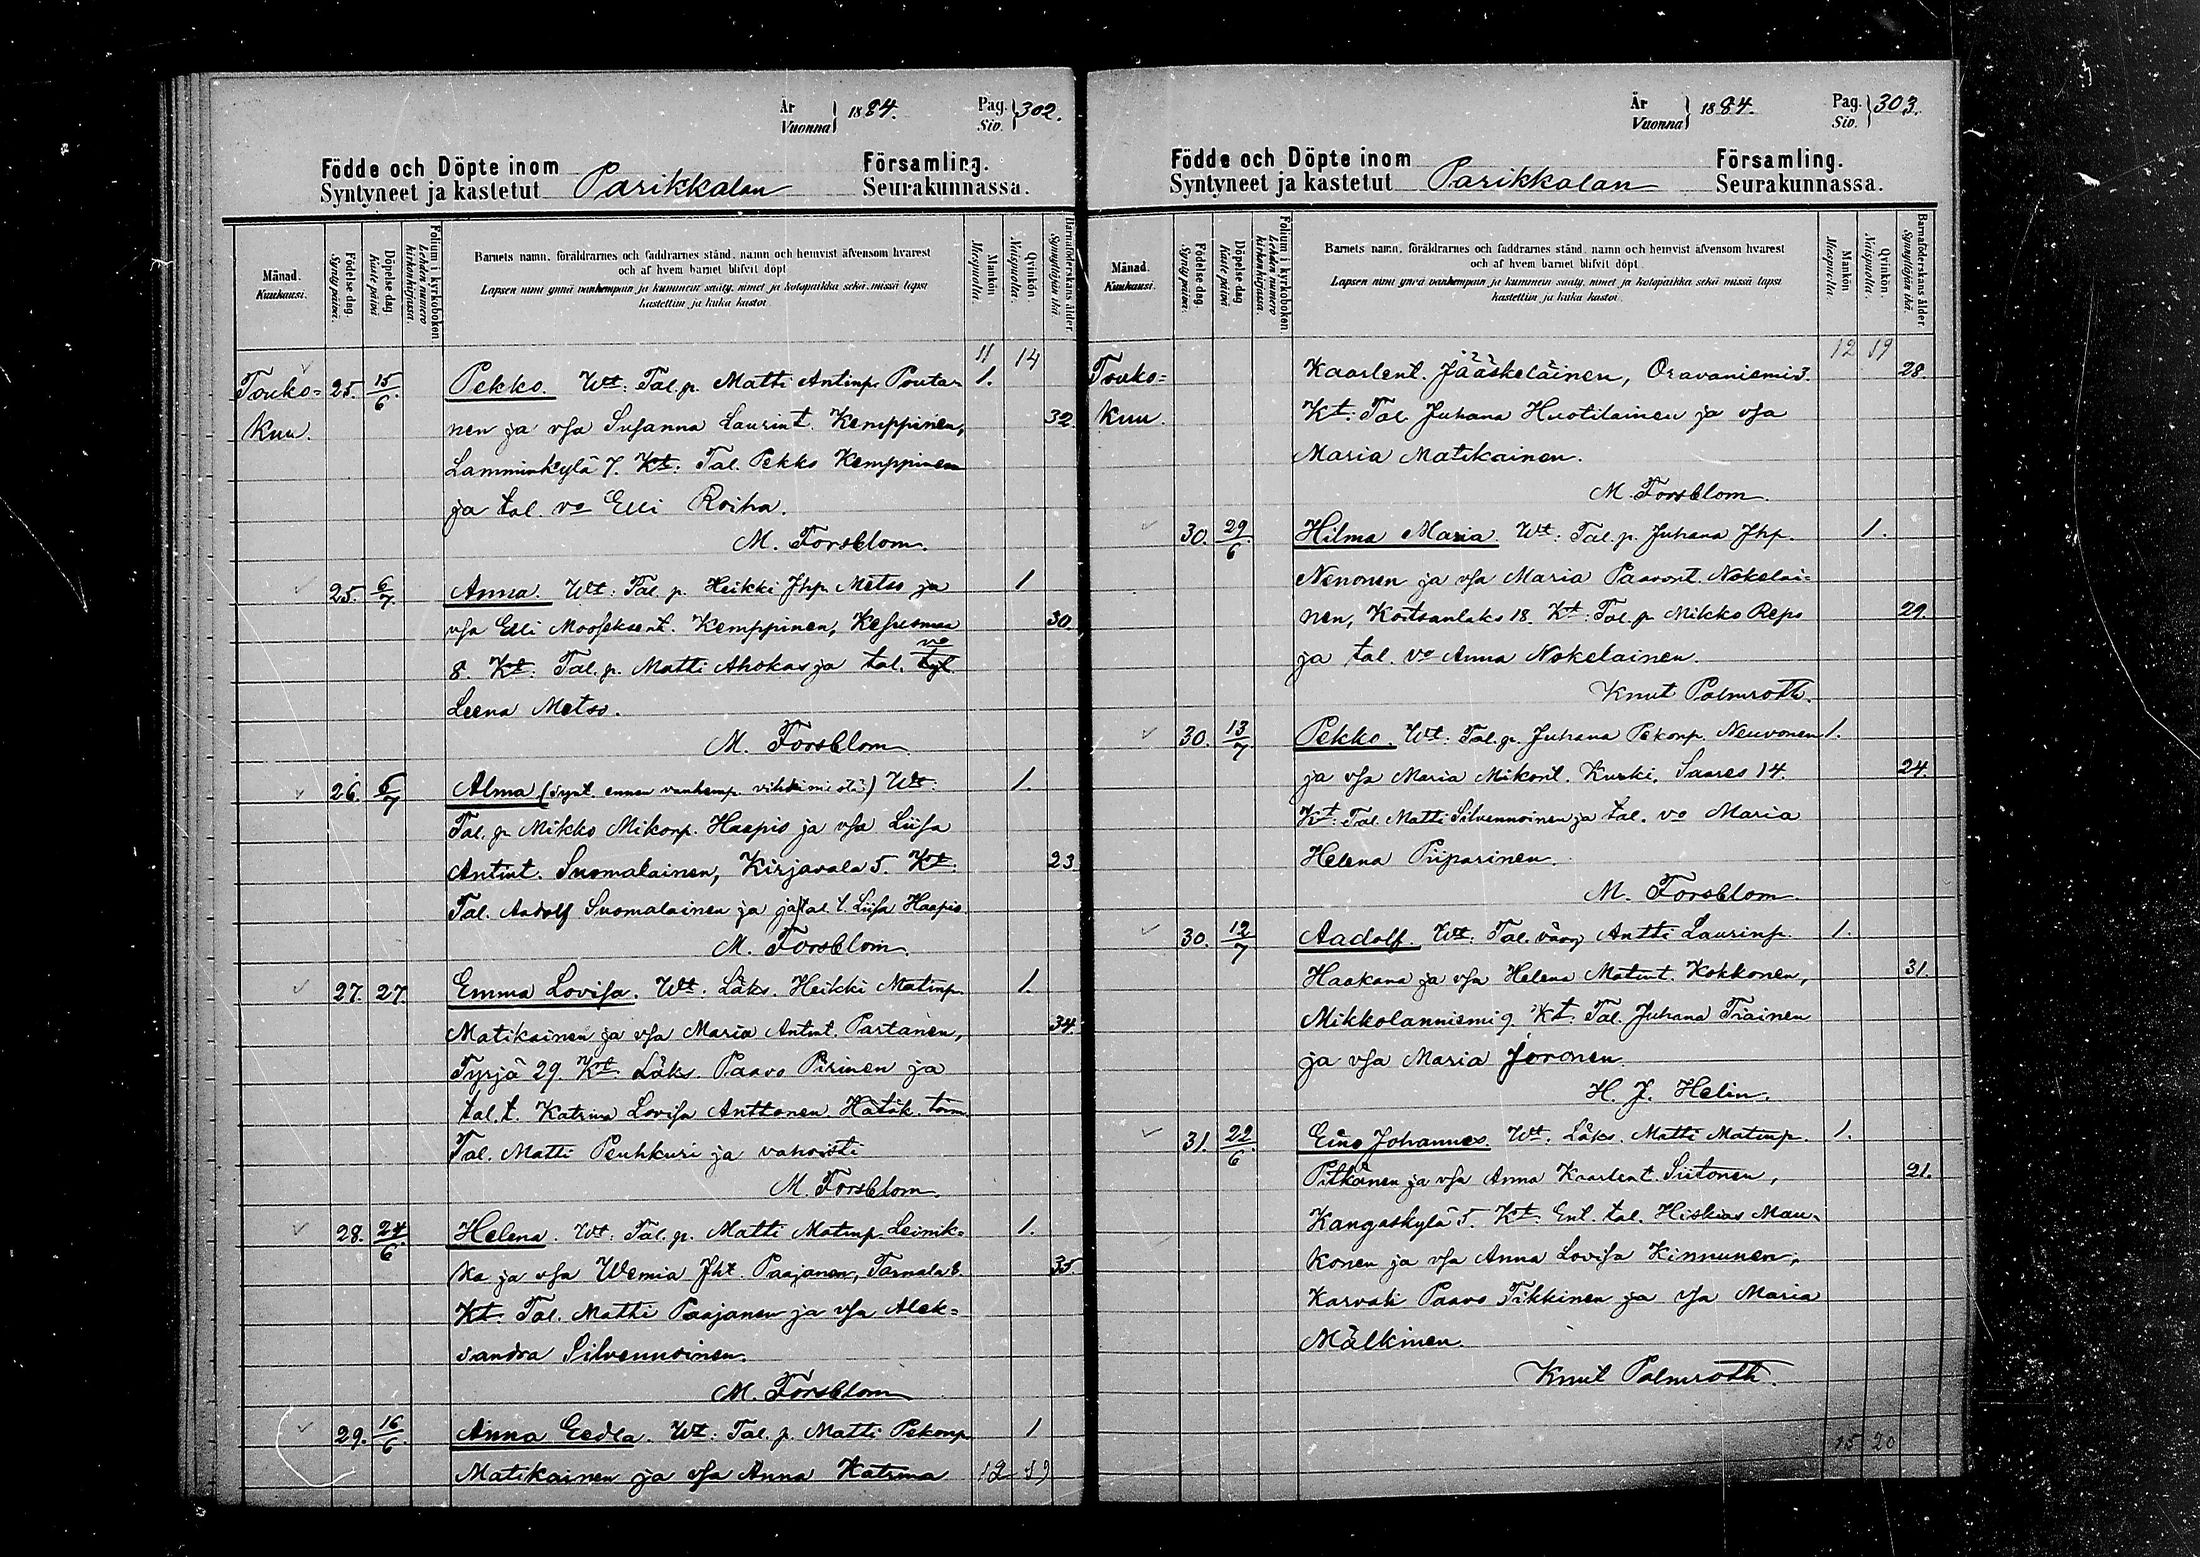 År Vuonna } 1884. Pag. Siv. } 302.
Födde och Döpte inom Parikkalan Församling.
Syntyneet ja kastetut Seurakunnassa.
Månad. Kuukausi.
Födelse-dag. Synty päivä.
Döpelse-dag. Kaste päivä
Folium i kyrkoboken Lehden numero kirkonkirjassa.
Barnets namn, föräldrarnes och faddrarnes stånd, namn och hemvist äfvensom hvarest
och af hvem barnet blifvit döpt
Lapsen nimi ynnä vanhempain ja kummein sääty, nimet ja kotopaikka sekä missä lapsi
kastettiin ja kuka kastoi
Mankön Miespuolta.
Qvinkön. Naispuolta.
Barnaföderskans ålder. Synnyttäjän ikä.
11 14
Touko= 25. 15/6. Pekko. Wt: Tal. p. Matti Antinp. Pouta- 1.
kuu. nen ja vsa Susanna Laurint. Kemppinen, 32
Lamminkylä 7. Kt: Tal. Pekko Kemppinen
ja tal. vo Elli Roiha.
M. Forsblom.
25. 6/7. Anna. Wt: Tal. p. Heikki Jhp. Metso ja 1
vsa Elli Mooseksent. Kemppinen, Kesusmaa 30.
8. Kt: Tal. p. Matti Ahokas ja tal. vo
Leena Metso.
M. Forsblom
26. 6/7 Alma (synt. ennen vanhemp. vihkimistä) Wt: 1.
Tal. p. Mikko Mikonp. Haapio ja vsa Liisa
Antint. Suomalainen, Kirjavala 5. Kt: 23
Tal. Aadolf Suomalainen ja tal. t. Liisa Haapio.
M. Forsblom.
27. 27 Emma Lovisa. Wt: Läks. Heikki Matinp. 1.
Matikainen ja vsa Maria Antint. Partanen, 34.
Tyrjä 29. Kt: Läks. Paavo Pirinen ja
tal. t. Katrina Lovisa Anttonen. Hätäk. toim.
Tal. Matti Peuhkuri ja vahvisti
M. Forsblom.
28. 24/6. Helena. Wt: Tal. p. Matti Matinp. Leinik= 1.
ka ja vsa Wemia Jht. Paajanen, Tarnala 8 35.
Kt: Tal. Matti Paajanen ja vsa Alek=
sandra Silvennoinen.
M. Forsblom
29. 16/6. Anna Eedla. Wt: Tal. p. Matti Pekonp. 1
Matikainen ja vsa Anna Katrina 12 19
År Vuonna } 1884. Pag. Siv. } 303.
Födde och Döpte inom Parikkalan Församling.
Syntyneet ja kastetut Seurakunnassa.
Månad. Kuukausi.
Födelse-dag. Synty päivä.
Döpelse-dag. Kaste päivä
Folium i kyrkoboken Lehden numero kirkonkirjassa.
Barnets namn, föräldrarnes och faddrarnes stånd, namn och hemvist äfvensom hvarest
och af hvem barnet blifvit döpt.
Lapsen nimi ynnä vanhempain ja kummein sääty, nimet ja kotopaikka sekä missä lapsi
kastettiin ja kuka kastoi
Mankön Miespuolta.
Qvinkön. Naispuolta.
Barnaföderskans ålder. Synnyttäjän ikä.
12 19
Touko= Kaarlent. Jääskeläinen, Oravaniemi 3. 28.
kuu. Kt: Tal. Juhana Huotilainen ja vsa
Maria Matikainen.
M. Forsblom.
30. 29/6. Hilma Maria. Wt: Tal. p. Juhana Jhp. 1.
Nenonen ja vsa Maria Paavont. Nokelai=
nen, Koitsanlaks 18. Kt: Tal. p. Mikko Repo 29.
ja tal. vo Anna Nokelainen.
Knut Palmroth.
30. 13/7 Pekko. Wt: Tal. p. Juhana Pekonp. Neuvonen 1.
ja vsa Maria Mikont. Kurki, Saares 14. 24.
Kt: Tal. Matti Silvennoinen ja tal. vo Maria
Helena Piiparinen.
M. Forsblom.
30. 12/7 Aadolf. Wt: Tal. vävy Antti Laurinp. 1.
Haakana ja vsa Helena Matint. Kokkonen, 31.
Mikkolanniemi 9. Kt: Tal. Juhana Tiainen
ja vsa Maria Joronen.
H. J. Helin.
31. 22/6. Eino Johannes. Wt: Läks. Matti Matinp. 1.
Pitkänen ja vsa Anna Kaarlent. Siitonen, 21.
Kangaskylä 5. Kt: Ent. tal. Hiskias Mau-
konen ja vsa Anna Lovisa Kinnunen,
Karvah Paavo Tikkinen ja vsa Maria
Mälkinen.
Knut Palmroth.
15 20